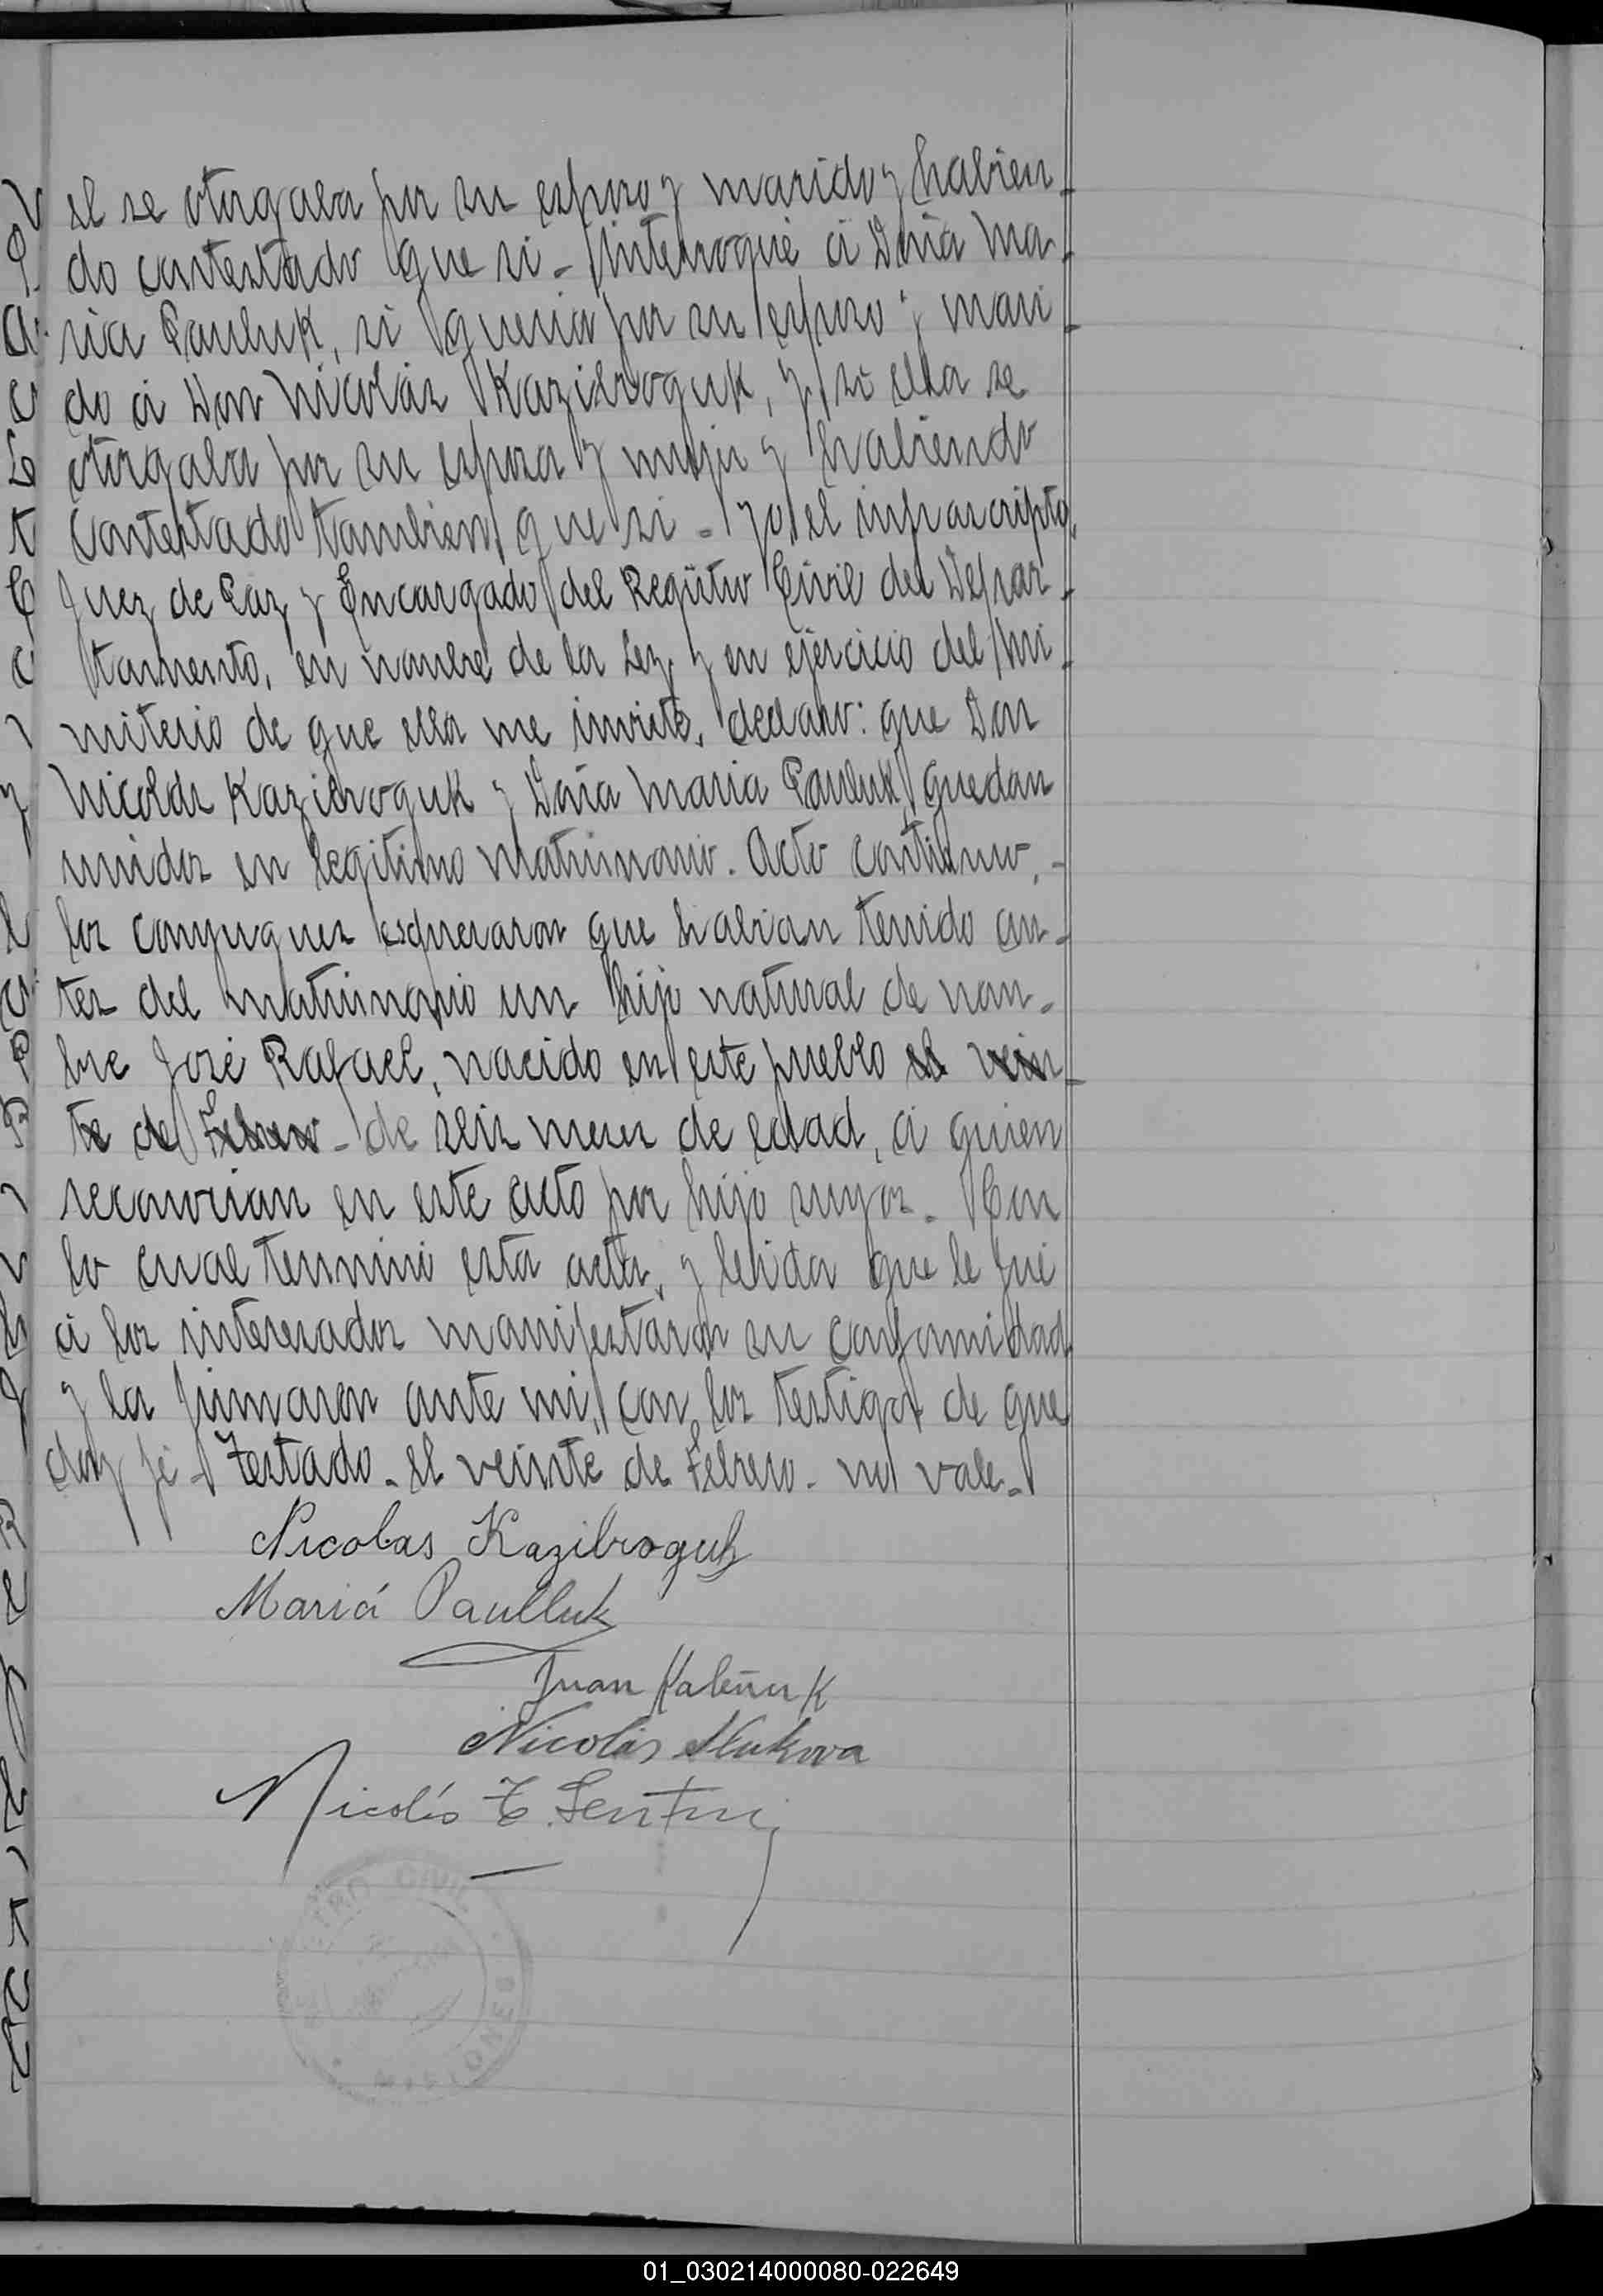 el se otorgaba por su esposo y marido y habien-
do contestado que si - Interroqué á Doña Ma-
ria Pauluk, si queria por su esposo y mari-
do á Don Nicolás Kazibroguk, y si ella se
otorgaba por su esposa y mujer y habiendo
contestado tambien que si - Yo el infrascripto,
Juez de Paz y Encargado del Registro Civil del Depar-
tamento, en nombre de la Ley y en ejercicio del Mi-
niterio de que ella me inviste, declaro: que Don
Nicolás Kazibroguk y Doña Maria Pauluk, quedan
unidos en legitimo matrimonio. Acto continuo, -
los conyugues expresaron que habian tenido an-
tes del matrimonio un hijo natural de nom-
bre José Rafael, nacido en este pueblo el vein-
te de Febrero - de seis meses de edad, á quien
reconocian en este acto por hijo suyos. Con
lo cual terminó esta acta, y leida que le fué
á los interesados manifestaron su conformidad
y la firmaron ante mi, con los testigos de que
doy fé - Testado - el veinte de Febrero - no vale -
Nicolas Kazibroguk
Mariá Paulluk
Juan Kaleñuk
Nicolás
Nicolás
REGISTRO CIVIL
MISIONES
01_030214000080-022649